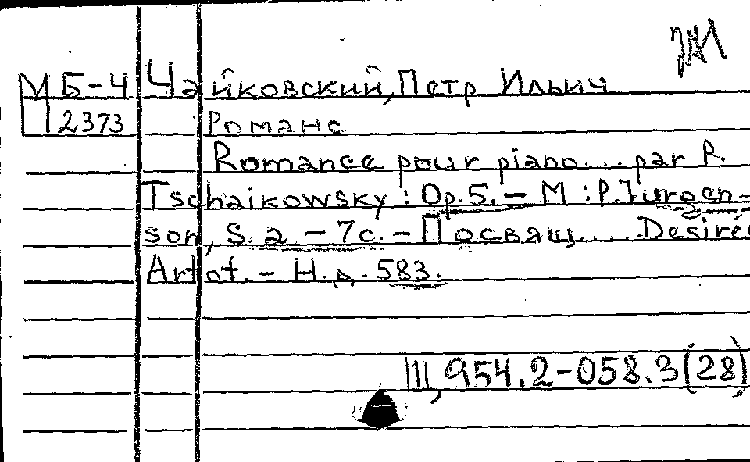 МБ-4 Чайковский, Петр Ильич
2373 Романс
Romance pour piano... par P.
Tschaikowsky : Op. 5. – М : P. Jurgen-
son, S. a. – 7 с. – Посвящ.... Desirée
Artot. – Н. д. 583.
954.2-058.3(28)